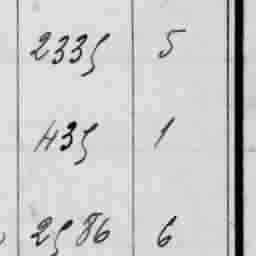 2335 5
435 1
2586 6